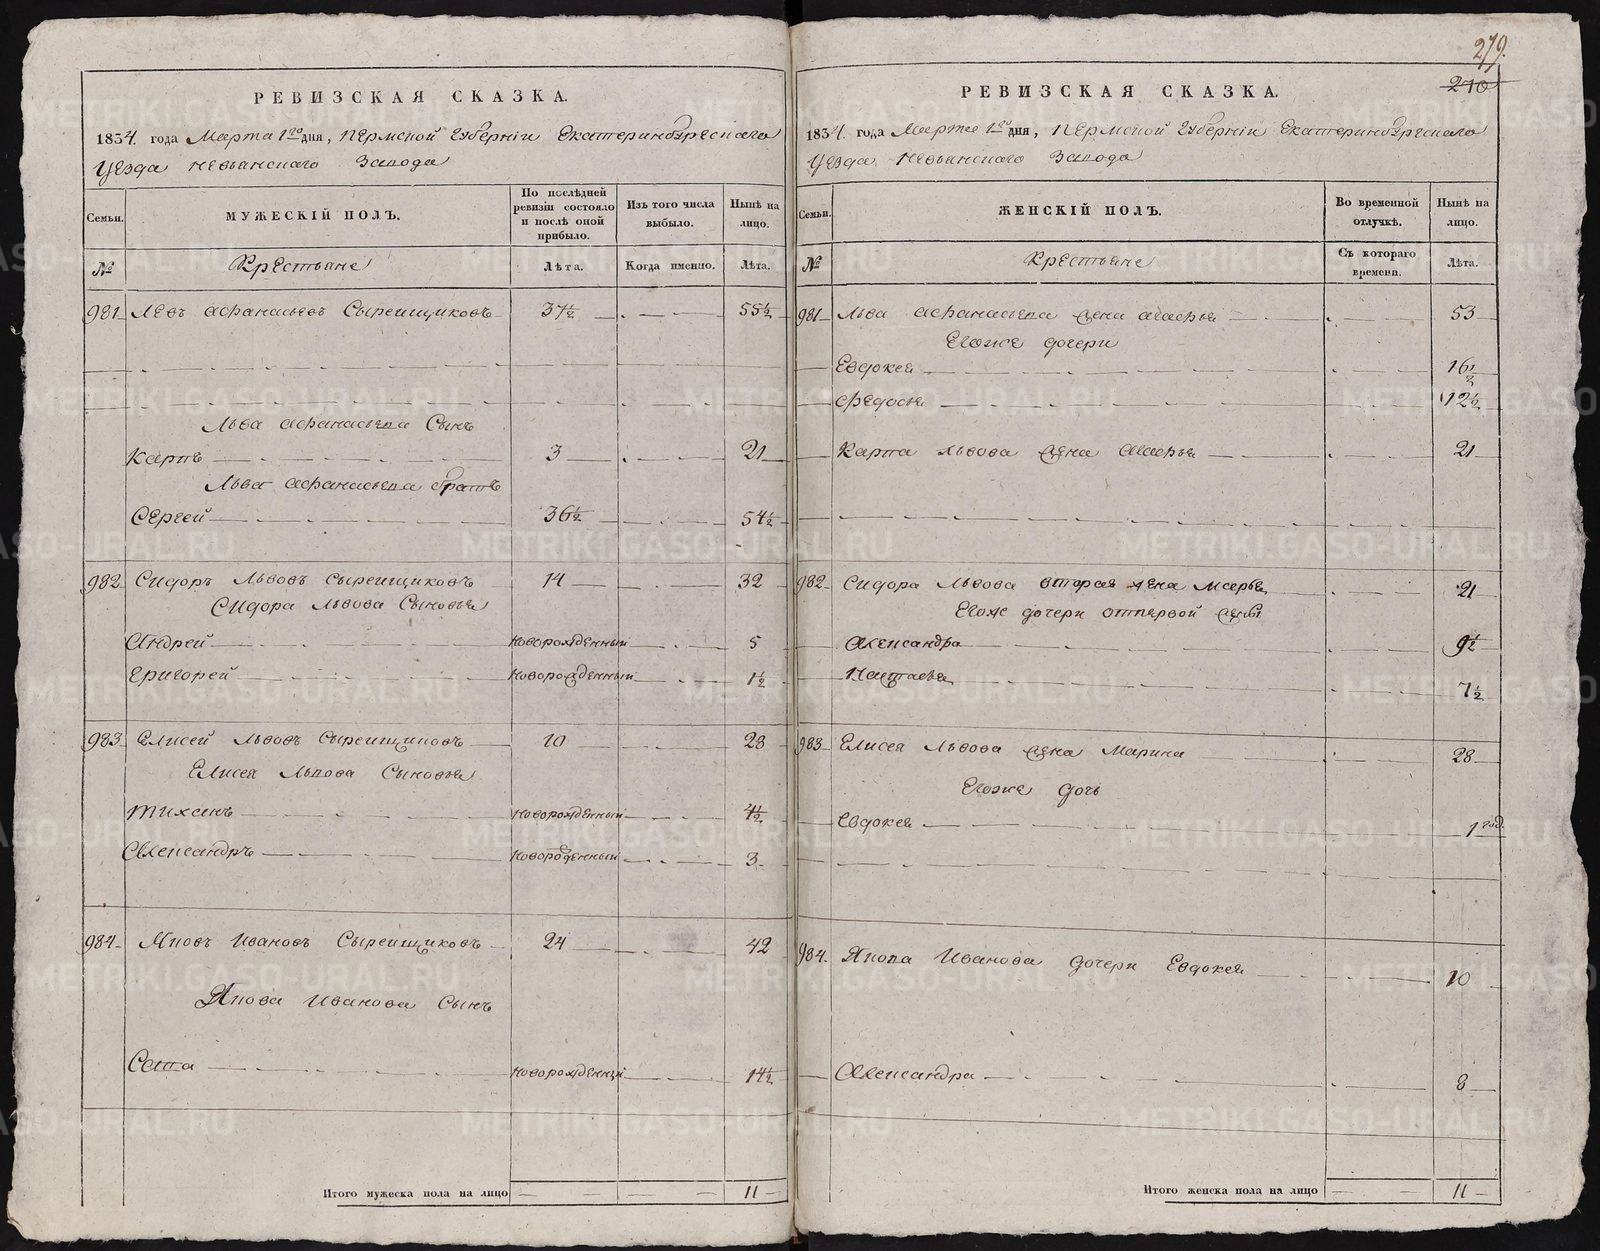 РЕВИЗСКАЯ СКАЗКА.
1834. года Марта 1го дня, Пермской Губерніи Екатеринбургскаго
Уезда Невьянскаго Завода
Семьи.
МУЖЕСКІЙ ПОЛЪ.
По послѣдней ревизіи состояло и послѣ оной прибыло.
Изъ того числа выбыло.
Нынѣ на лицо.
№
Крестьяне
Лѣта.
Когда именно.
Лѣта.
981 Левъ Афанасьевъ Сыреищиковъ 37½ 55½
Льва Афанасьева Сынъ
Карпъ 3 21
Льва Афанасьева братъ
Сергей 36½ 54½
982 Сидоръ Львовъ Сыреищиковъ 14 32
Сидора Львова Сыновья
Андрей новорожденный 5
Григорей новорожденный 1½
983 Елисей Львовъ Сыреищиковъ 10 28
Елисея Львова Сыновья
Тихонъ новорожденный 4½
Александръ новороденный 3
984 Яковъ Ивановъ Сыреищиковъ 24 42
Якова Иванова Сынъ
Сава новорожденный 14½
Итого мужеска пола на лицо 11
279.
210
РЕВИЗСКАЯ СКАЗКА.
1834. года Марта 1го дня, Пермской Губерніи Екатеринбургскаго
Уезда Невьянскаго Завода
Семьи.
ЖЕНСКІЙ ПОЛЪ.
Во временной отлучкѣ.
Нынѣ на лицо.
№
Крестьяне
Съ котораго времени.
Лѣта.
981 Льва Афанасьева жена Агафья 53
Егоже дочери
Евдокея 16½
Федосья 12½
Карпа Львова жена Агафья 21
982 Сидора Львова вторая жена Марья 21
Егоже дочери отпервой жены
Александра 9½
Настасья 7½
983 Елисея Львова жена Марина 28
Егоже дочь
Евдокея 1 год.
984. Якова Иванова дочери Евдокея 10
Александра 8
Итого женска пола на лицо 11
METRIKI.GASO-URAL.RU